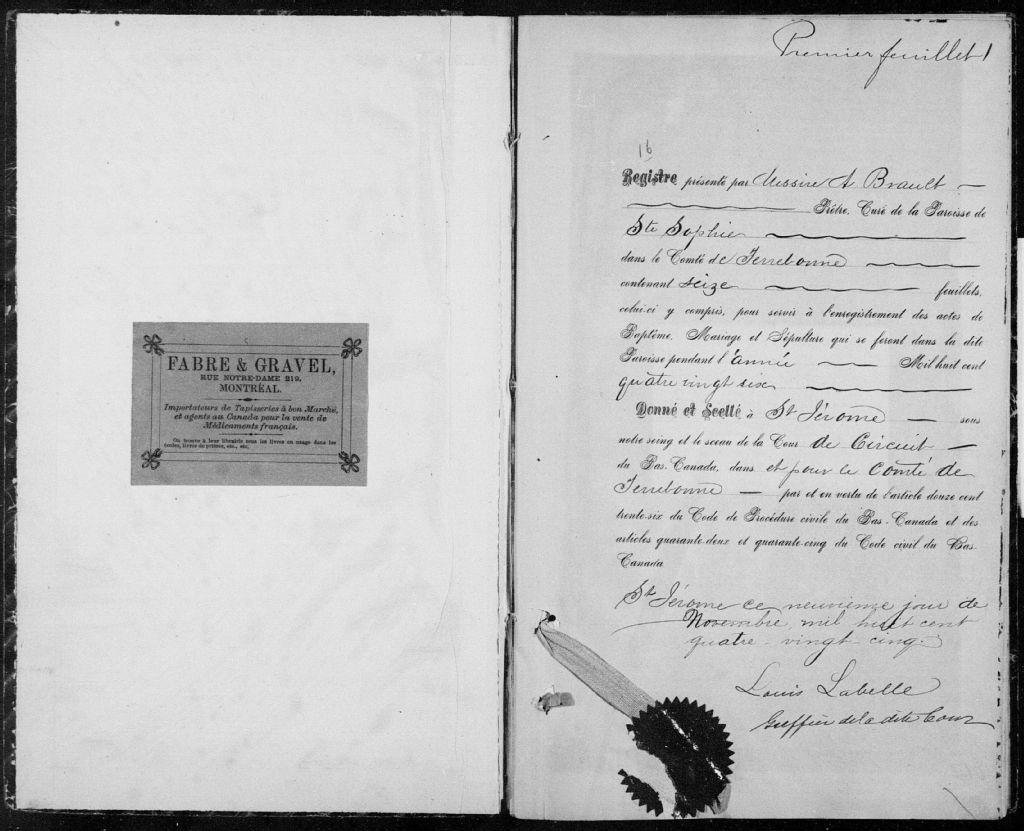 FABRE & GRAVEL,
RUE NOTRE-DAME 219,
MONTRÉAL.
Importateurs de Tapisseries à bon Marché,
et agents au Canada pour la vente de
Médicaments français.
On trouve à leur librairie tous les livres en usage dans les
écoles, livres de prières, etc., etc.
Premier feuillet 1
16
Registre présenté par Messire A. Brault
Prêtre, Curé de la Paroisse de
Ste Sophie
dans le Comté de Terrebonne
contenant seize feuillets,
celui-ci y compris, pour servir à l'enregistrement des actes de
Baptême, Mariage et Sépulture qui se feront dans la dite
Paroisse pendant l'année Mil huit cent
quatre vingt six
Donné et Scellé à St Jérome sous
notre seing et le sceau de la Cour de Circuit
du Bas-Canada, dans et pour le Comté de
Terrebonne par et en vertu de l'article douze cent
trente-six du Code de Procédure civile du Bas-Canada et des
articles quarante-deux et quarante-cinq du Code civil du Bas-
Canada
St Jérome ce neuvieme jour de
Novembre mil huit cent
quatre-vingt-cinq.
Louis Labelle
Greffier de la dite Cour